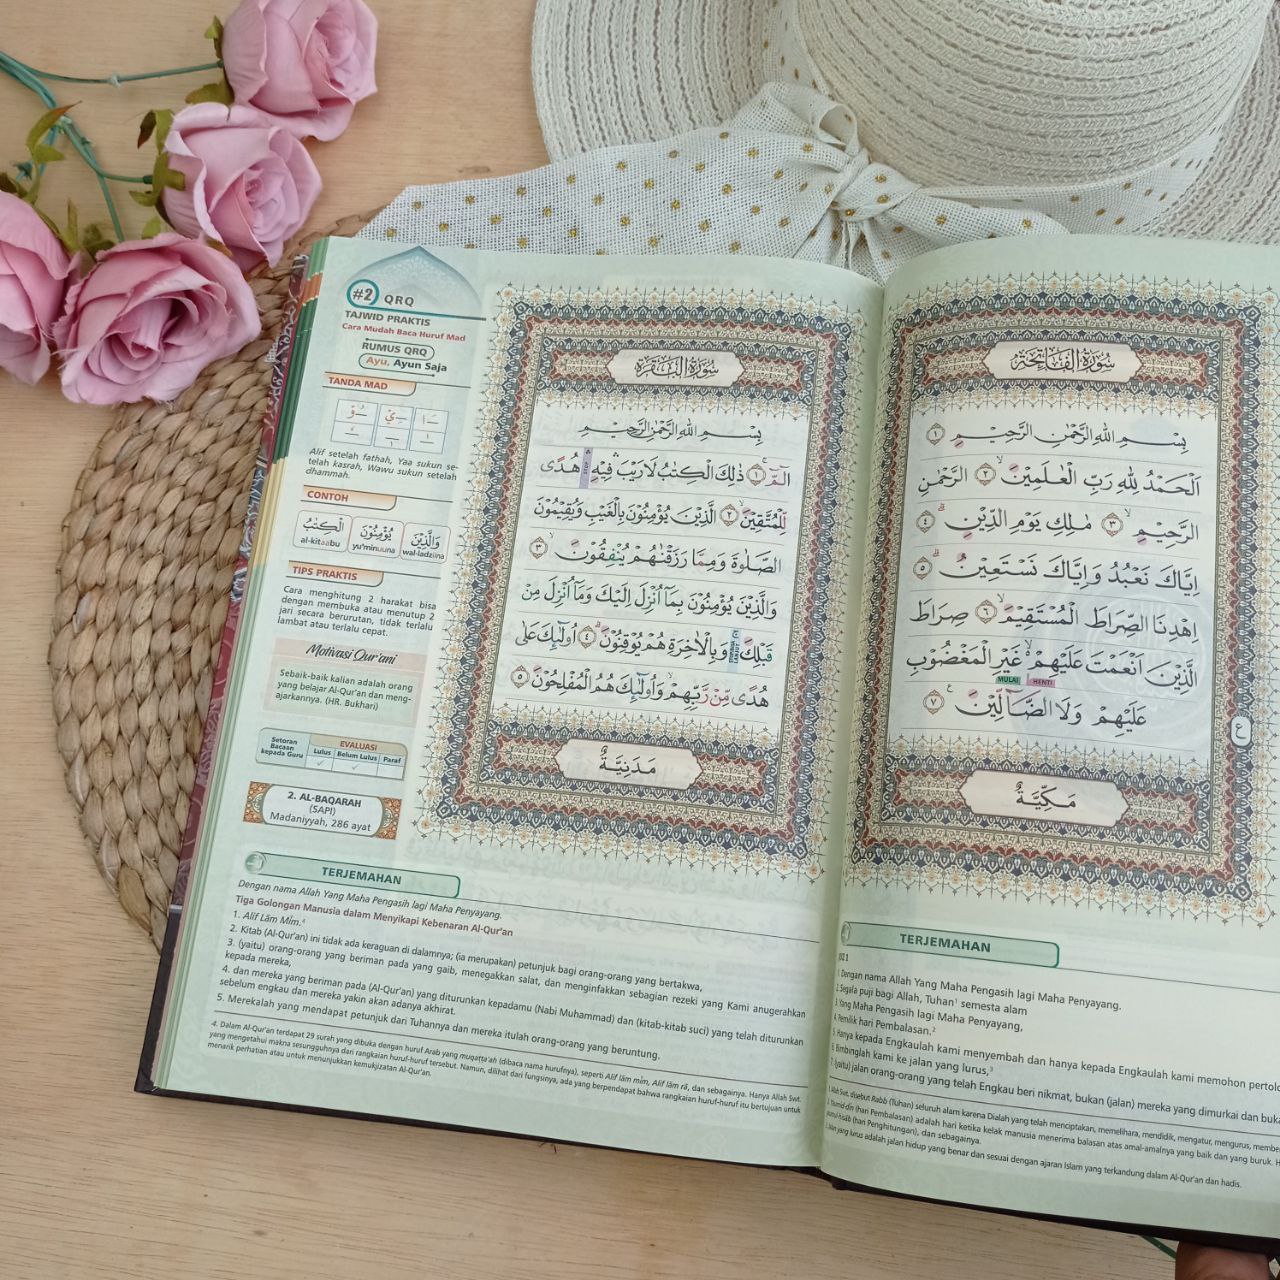 سُورَةُ الْفَاتِحَةِ
بِسْمِ اللّٰهِ الرَّحْمٰنِ الرَّحِيْمِ ١
اَلْحَمْدُ لِلّٰهِ رَبِّ الْعٰلَمِيْنَۙ ٢ الرَّحْمٰنِ
الرَّحِيْمِۙ ٣ مٰلِكِ يَوْمِ الدِّيْنِۗ ٤
اِيَّاكَ نَعْبُدُ وَاِيَّاكَ نَسْتَعِيْنُۗ ٥
اِهْدِنَا الصِّرَاطَ الْمُسْتَقِيْمَۙ ٦ صِرَاطَ
الَّذِيْنَ اَنْعَمْتَ عَلَيْهِمْ ەۙ غَيْرِ الْمَغْضُوْبِ
MULAI HENTI
عَلَيْهِمْ وَلَا الضَّاۤلِّيْنَ ࣖ ٧
ع
مَكِّيَّةٌ
TERJEMAHAN
1. Dengan nama Allah Yang Maha Pengasih lagi Maha Penyayang.
2. Segala puji bagi Allah, Tuhan¹ semesta alam
3. Yang Maha Pengasih lagi Maha Penyayang,
4. Pemilik hari Pembalasan.²
5. Hanya kepada Engkaulah kami menyembah dan hanya kepada Engkaulah kami memohon
6. Bimbinglah kami ke jalan yang lurus,³
7. (yaitu) jalan orang-orang yang telah Engkau beri nikmat, bukan (jalan) mereka yang dimurkai dan
1. Allah Swt. disebut Rabb (Tuhan) seluruh alam karena Dialah yang telah menciptakan, memelihara, mendidik, mengatur, mengurus,
2. Yaumid-dīn (hari Pembalasan) adalah hari ketika kelak manusia menerima balasan atas amal-amalnya yang baik dan yang buruk.
(hari Penghitungan), dan sebagainya.
3. Jalan yang lurus adalah jalan hidup yang benar dan sesuai dengan ajaran Islam yang terkandung dalam Al-Qur'an dan hadis.
#2 QRQ
TAJWID PRAKTIS
Cara Mudah Baca Huruf Mad
RUMUS QRQ
Ayu, Ayun Saja
TANDA MAD
Alif setelah fathah, Yaa sukun se-
telah kasrah, Wawu sukun setelah
dhammah.
CONTOH
وَالَّذِيْنَ يُؤْمِنُوْنَ الْكِتٰبُ
al-kitaabu yu'minuuna wal-ladziina
TIPS PRAKTIS
Cara menghitung 2 harakat bisa
dengan membuka atau menutup 2
jari secara berurutan, tidak terlalu
lambat atau terlalu cepat.
Motivasi Qur'ani
Sebaik-baik kalian adalah orang
yang belajar Al-Qur'an dan meng-
ajarkannya. (HR. Bukhari)
Setoran
Bacaan
kepada Guru
EVALUASI
Lulus Belum Lulus Paraf
2. AL-BAQARAH
(SAPI)
Madaniyyah, 286 ayat
سُورَةُ الْبَقَرَةِ
بِسْمِ اللّٰهِ الرَّحْمٰنِ الرَّحِيْمِ
الۤمّۤۚ ١ ذٰلِكَ الْكِتٰبُ لَا رَيْبَۛ فِيْهِۛ هُدًى
لِّلْمُتَّقِيْنَۙ ٢ الَّذِيْنَ يُؤْمِنُوْنَ بِالْغَيْبِ وَيُقِيْمُوْنَ
الصَّلٰوةَ وَمِمَّا رَزَقْنٰهُمْ يُنْفِقُوْنَۙ ٣
وَالَّذِيْنَ يُؤْمِنُوْنَ بِمَآ اُنْزِلَ اِلَيْكَ وَمَآ اُنْزِلَ مِنْ
قَبْلِكَۚ وَبِالْاٰخِرَةِ هُمْ يُوْقِنُوْنَۗ ٤ اُولٰۤىِٕكَ عَلٰى
هُدًى مِّنْ رَّبِّهِمْۙ وَاُولٰۤىِٕكَ هُمُ الْمُفْلِحُوْنَ ٥
مَدَنِيَّةٌ
TERJEMAHAN
Dengan nama Allah Yang Maha Pengasih lagi Maha Penyayang.
Tiga Golongan Manusia dalam Menyikapi Kebenaran Al-Qur'an
1. Alif Lām Mīm.⁴
2. Kitab (Al-Qur'an) ini tidak ada keraguan di dalamnya; (ia merupakan) petunjuk bagi orang-orang yang bertakwa,
3. (yaitu) orang-orang yang beriman pada yang gaib, menegakkan salat, dan menginfakkan sebagian rezeki yang Kami anugerahkan
kepada mereka,
4. dan mereka yang beriman pada (Al-Qur'an) yang diturunkan kepadamu (Nabi Muhammad) dan (kitab-kitab suci) yang telah diturunkan
sebelum engkau dan mereka yakin akan adanya akhirat.
5. Merekalah yang mendapat petunjuk dari Tuhannya dan mereka itulah orang-orang yang beruntung.
4. Dalam Al-Qur'an terdapat 29 surah yang dibuka dengan huruf Arab yang muqaṭṭa'ah (dibaca nama hurufnya), seperti Alif lām mīm, Alif lām rā, dan sebagainya. Hanya Allah Swt.
yang mengetahui makna sesungguhnya dari rangkaian huruf-huruf tersebut. Namun, dilihat dari fungsinya, ada yang berpendapat bahwa rangkaian huruf-huruf itu bertujuan untuk
menarik perhatian atau untuk menunjukkan kemukjizatan Al-Qur'an.